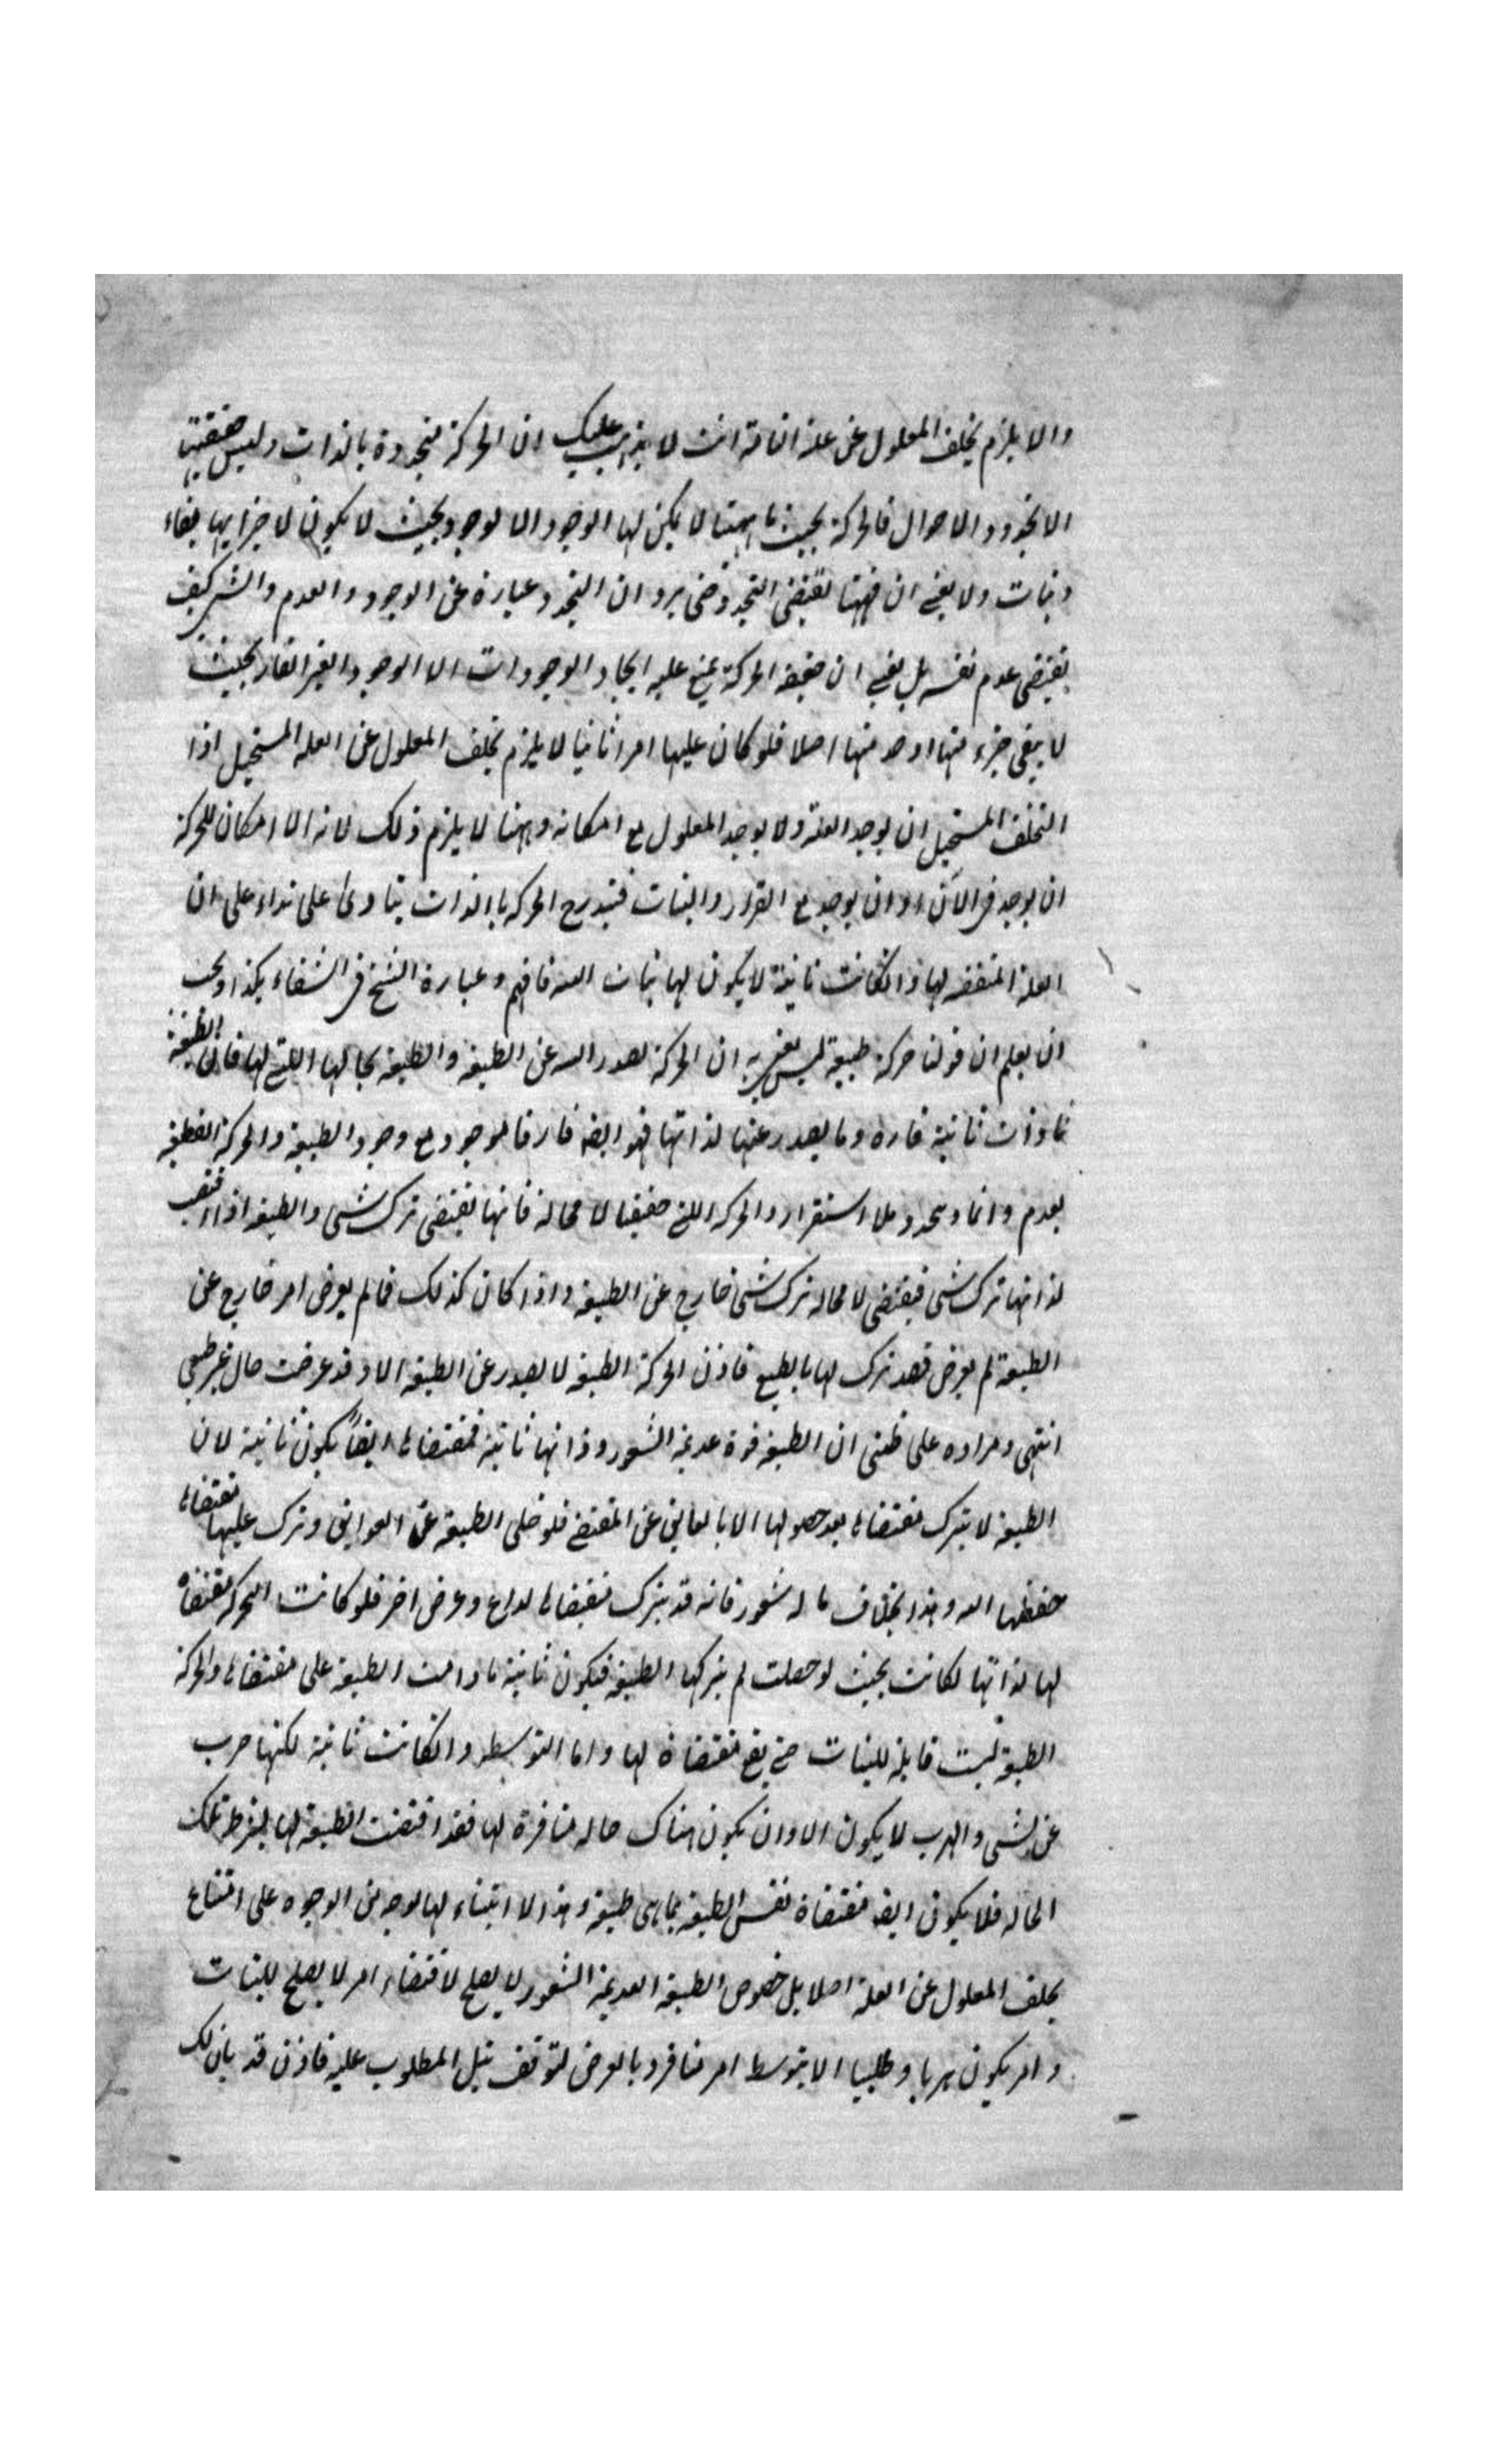 والا يلزم تخلف المعلول عن علته التامة انت لا يذهب عليك ان الحركة متجددة بالذات وليس حقيقتها
الا تجدد الاحوال فالحركة بحيث ماهيتها لا يمكن لها الوجود الا لوجود بحيث لا يكون لاجزائها بقاء
وثبات ولا يعني ان ماهيتها تقتضي التجدد حتى يرد ان التجدد عبارة عن الوجود والعدم والشئ كيف
يقتضي عدم نفسه بل يعني ان حقيقة الحركة يمتنع عليه انحاء الوجودات الا الوجود الغير القار بحيث
لا يبقى جزء منها او حد منها اصلا فلو كان علتها امرا ثابتا لا يلزم تخلف المعلول عن العلة المستحيل اذا
التخلف المستحيل ان يوجد العلة ولا يوجد المعلول مع امكانه وههنا لا يلزم ذلك لانه لا امكان للحركة
ان يوجد في الآن او ان يوجد مع القرار والثبات فتدرج الحركة بالذات ينادى على نداء على ان
العلة المقتضية لها وان كانت ثابتة لا يكون لها ثبات البتة فافهم وعبارة الشيخ في الشفاء هكذا ويجب
ان يعلم ان قولنا حركة طبيعية ليس يعني به ان الحركة تصدر البتة عن الطبيعة والطبيعة بحالها التي لها فان الطبيعة
ذات ثابتة قارة وما يصدر عنها لذاتها فهو ايضا قار قائم موجود مع وجود الطبيعة والحركة القطعية
يعدم دائما ويتجدد بلا استقرار والحركة التي حققناها لا محالة فانها تقتضي ترك شئ والطبيعة اذا اقتضت
لذاتها ترك شئ فيقتضي لا محالة ترك شئ خارج عن الطبيعة واذا كان كذلك فما لم يعرض امر خارج عن
الطبيعة لم يعرض قصد ترك لها بالطبع فاذن الحركة الطبيعية لا يصدر عن الطبيعة الا وقد عرضت حال غير طبيعي
انتهى ومراده على ظني ان الطبيعة قوة عديمة الشعور وذاتها ثابتة فمقتضاها ايضاً يكون ثابتة لان
الطبيعة لا يترك مقتضاها بعد حصولها الا بالعايق عن المقتضي فلو خلى الطبيعة عن العوايق وترك عليها مقتضاها
حفظها البتة وهذا بخلاف ما له شعور فانه قد يترك مقتضاها لداع وغرض اخر فلو كانت الحركة مقتضاة
لها لذاتها لكانت بحيث لو حصلت لم يتركها الطبيعة فيكون ثابتة ما دامت الطبيعة على مقتضاها والحركة
الطبيعية ليست قابلة للثبات حتى يقع مقتضاة لها واما التوسط وان كانت ثابتة لكنها هرب
عن شئ والهرب لا يكون الا وان يكون هناك حالة منافرة لها فقد اقتضت الطبيعة لها بشرط تلك
الحالة فلا يكون ايضا مقتضاة نفس الطبيعة بما هي طبيعة وهذا لا ابتناء لها لوجه من الوجوه على امتناع
تخلف المعلول عن العلة اصلا بل خصوص الطبيعة العديمة الشعور لا يصلح لاقتضاء امر لا يصلح للثبات
وامر يكون هربا وطلبا الا بتوسط امر منافر وبالعرض لتوقف نيل المطلوب عليه فاذن قد بان لك